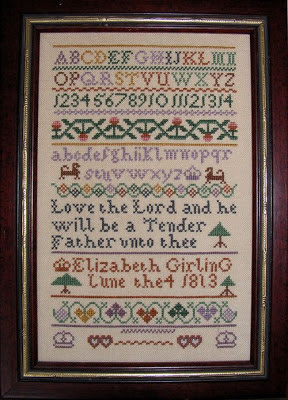 ABCDEFGHIJKLMN
OPQRSTUVWXYZ
1234567891011121314
abcdefghijklmnopqr
stuvwxyz
Love the Lord and he
will be a Tender
Father vnto thee
Elizabeth GirlinG
Iune the 4 1813